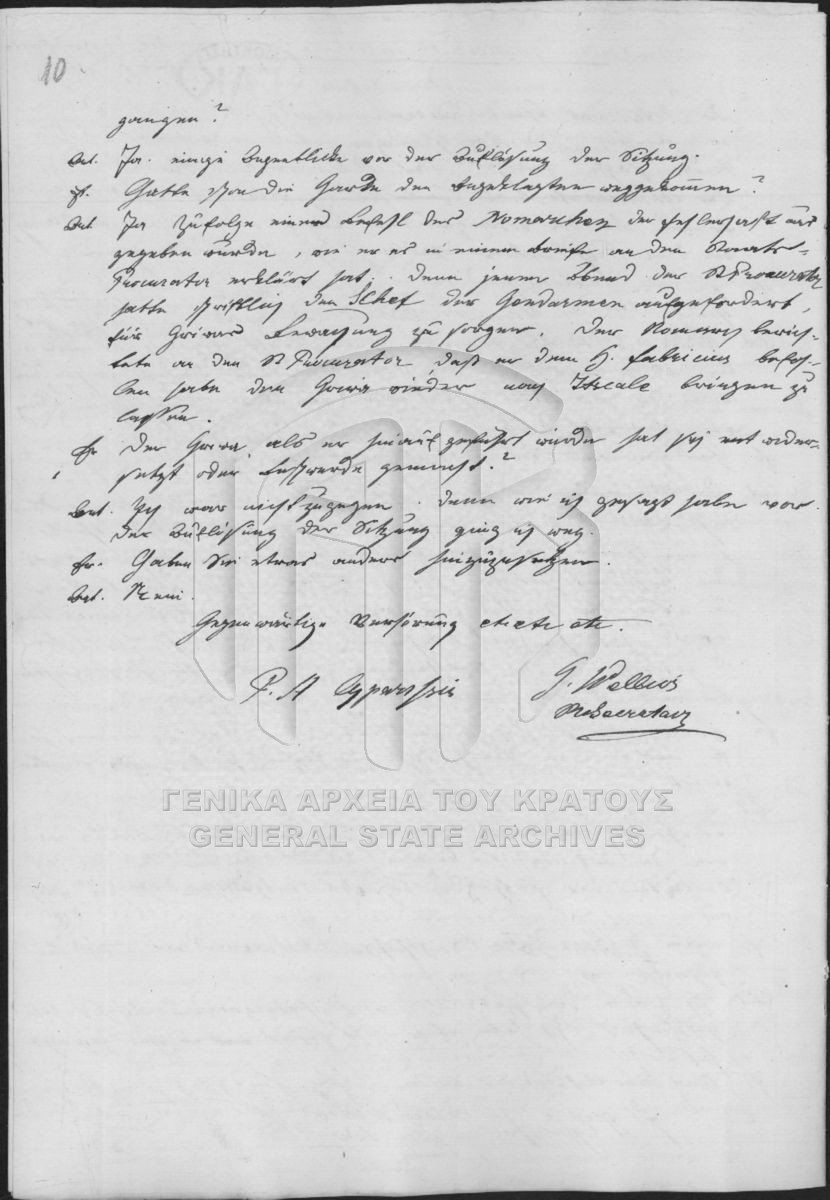 10
gangen?
Ant. Ja. einige Augenblicke vor der Auflösung der Sitzung.
Fr. Hatte schon die Garde den Angeklagten weggenommen?
Ant Ja zufolge eines Befehl des Nomarchen der fehlerhaft aus
gegeben wurde, wie er es in einem Briefe an den Staats-
Procurator erklärt hat. denn jenen Abend der StProcurator
hatte schriftlich den Chef der Gendarmen aufgefordert,
für Grivas Bewachung zu sorgen. Der Nomarch berich-
tete an den StProcurator daß er dem H. Fabricius befoh-
len habe den Griva wieder nach Itscale bringen zu
lassen.
Fr Der Griva, als er hinauf geführt wurde hat sich wider-
setzt oder Beschwerde gemacht?
Ant. Ich war nicht zugegen. denn wie ich gesagt habe vor
der Auflösung der Sitzung ging ich weg.
Fr. Haben Sie etwas anders hinzuzusetzen.
Ant. Nein.
Gegenwärtige Verhörung etc etc etc.
P. A
G.